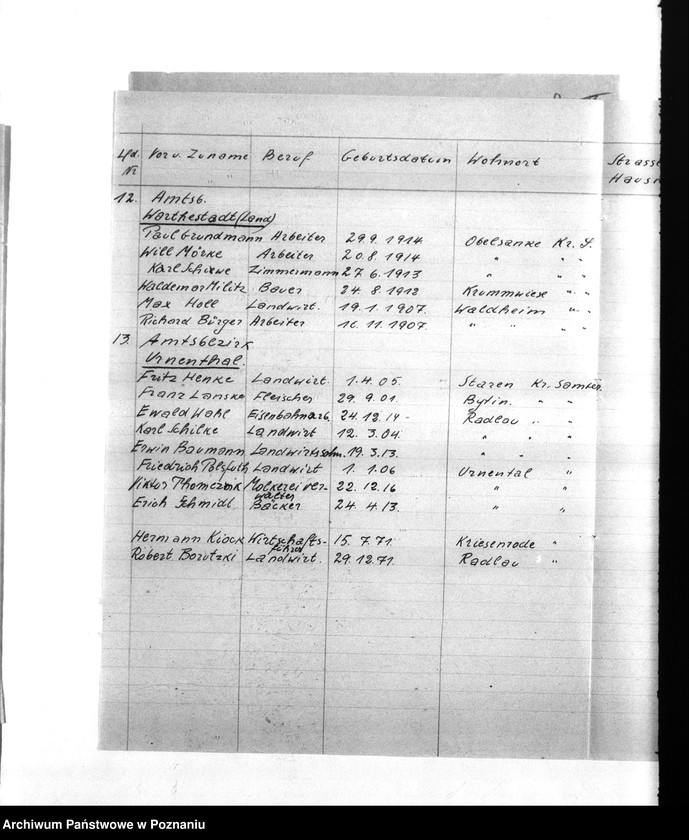 Lfd. Vor u. Zuname Beruf Geburtsdatum Wohnort Strass
Nr Haus
12. Amtsb.
Warthestadt (Land)
Paul Grundmann Arbeiter 29.9.1914 Obelsanke Kr. S.
Will Mörke Arbeiter 20.8.1914 " " "
Karl Schiewe Zimmermann 27.6.1913 " " "
Waldemar Militz Bauer 24.8.1912 Krummwiese " "
Max Holl Landwirt. 19.1.1907. Waldheim " "
Richard Bürger Arbeiter 16.11.1907. " " " "
13. Amtsbezirk
Urnenthal.
Fritz Henke Landwirt. 1.4.05. Staren Kr. Samter.
Franz Lanske Fleischer 29.9.01. Bytin. " "
Ewald Wahl Eisenbahnarb. 24.12.14 - Radlau " "
Karl Schilke Landwirt 12.3.04. " " "
Erwin Baumann Landwirtssohn. 19.3.13. " " "
Friedrich Landwirt 1.1.06 Urnental "
Viktor Molkereiver- 22.12.16 " "
walter
Erich Schmidl Bäcker 24.4.13. " "
Hermann Kiock Wirtschafts- 15.7.71 Kriesenrode "
führer
Robert Borutzki Landwirt. 29.12.71. Radlau "
Archiwum Państwowe w Poznaniu